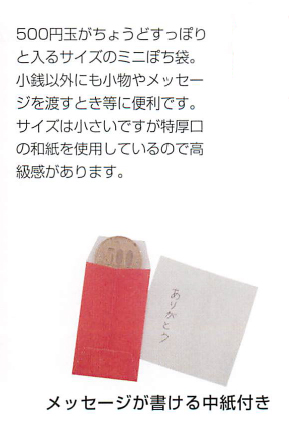 500円玉がちょうどすっぽり
と入るサイズのミニぽち袋。
小銭以外にも小物やメッセー
ジを渡すとき等に便利です。
サイズは小さいですが特厚口
の和紙を使用しているので高
級感があります。
500
ありがとう
メッセージが書ける中紙付き